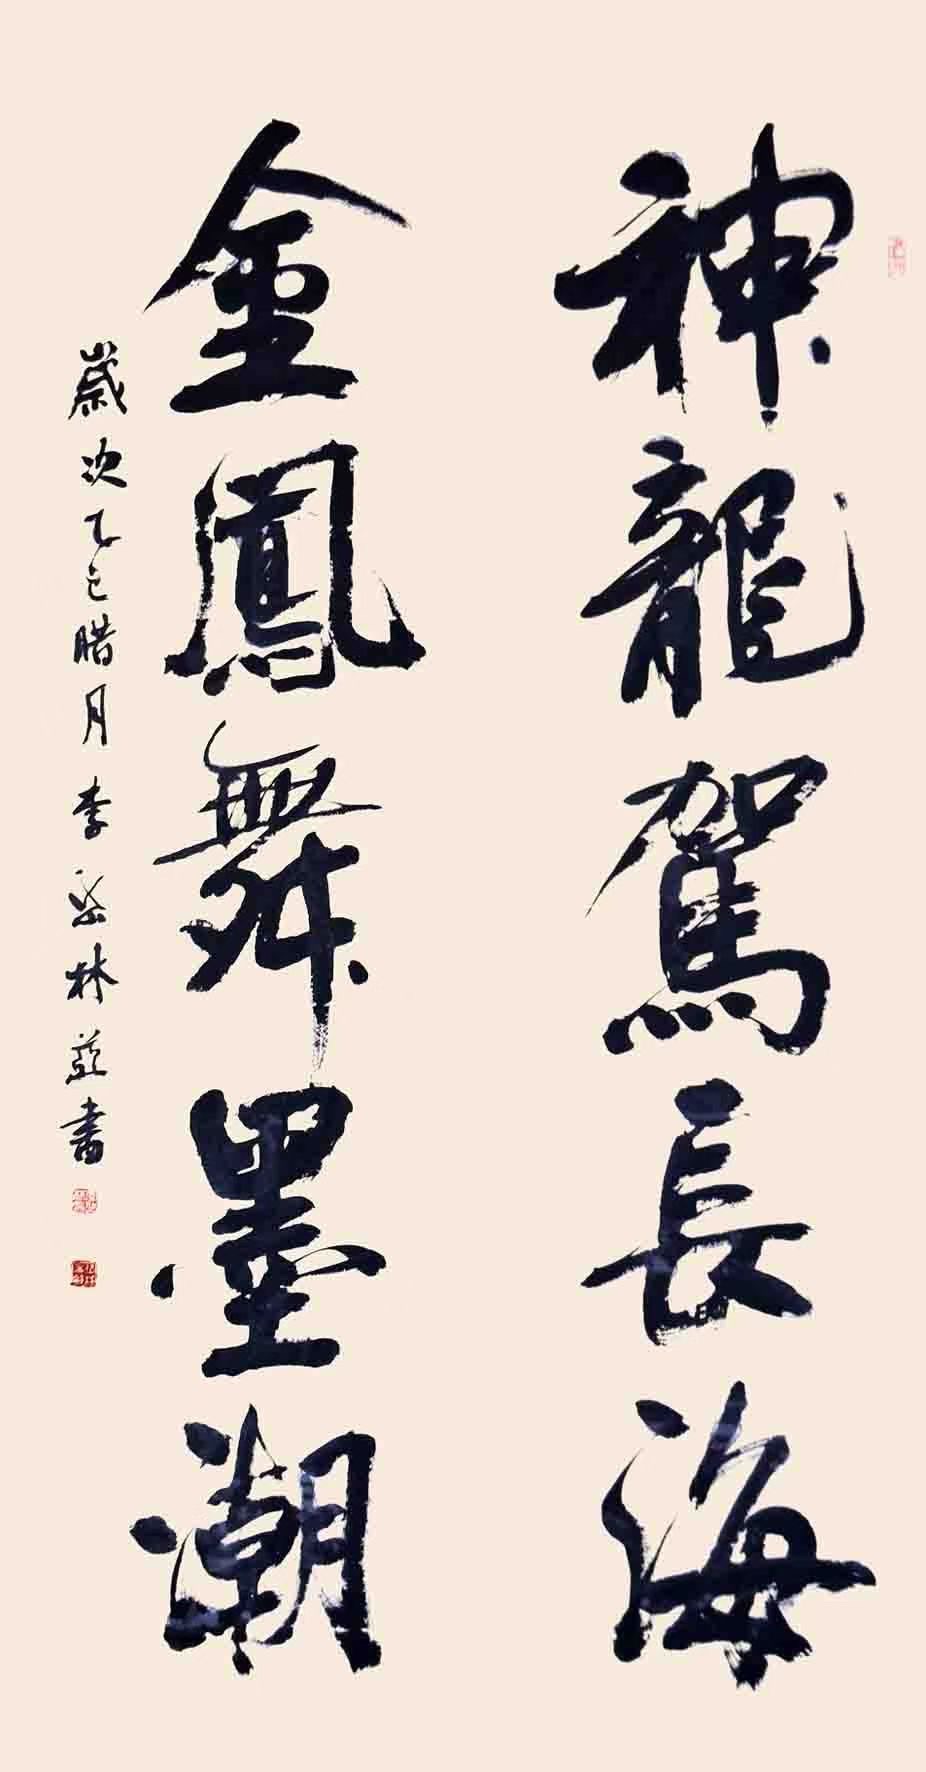 神龍駕長海
金鳳舞墨潮
歲次乙巳腊月李岳林並書